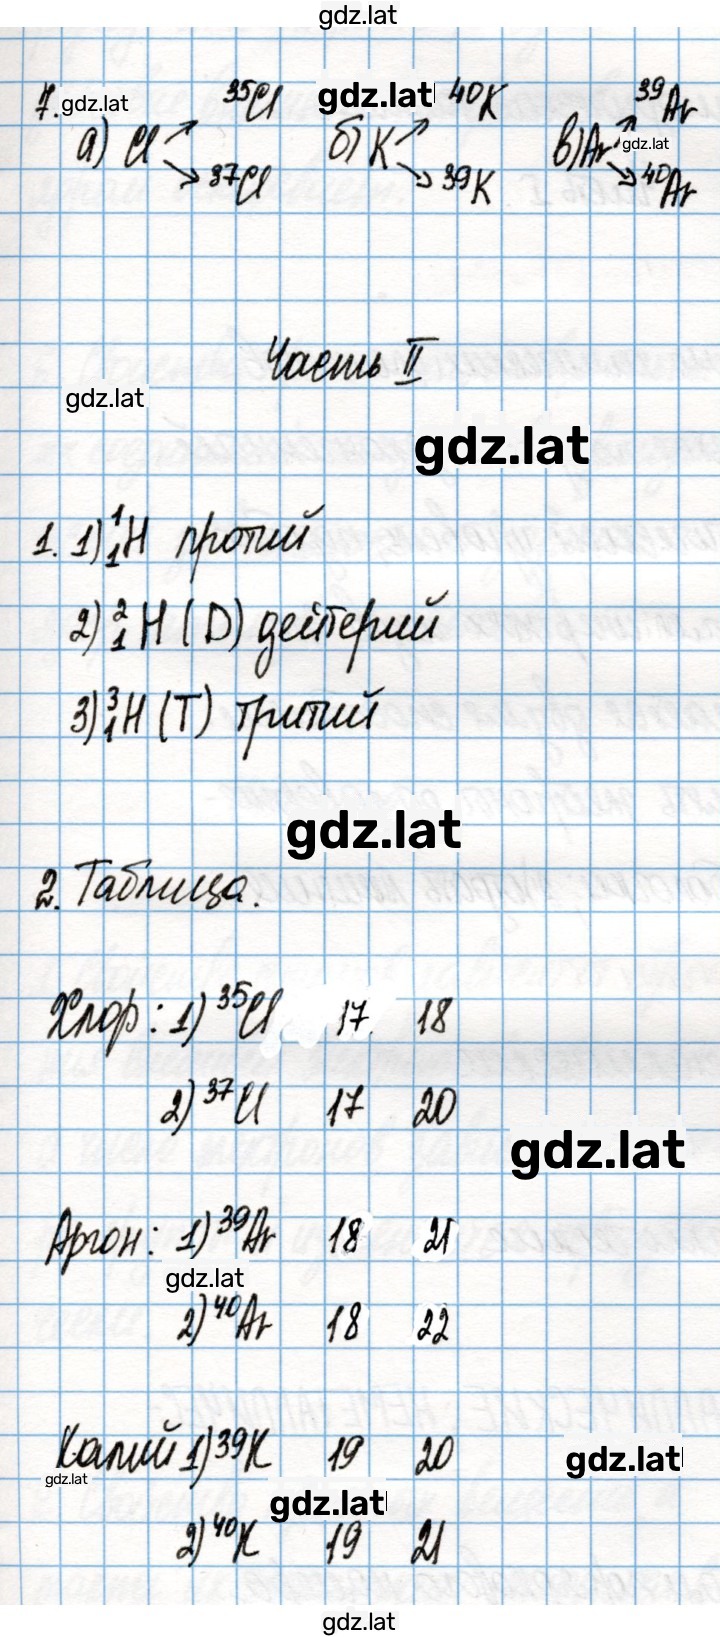 gdz.lat
7. gdz.lat ³⁵Cl gdz.lat ⁴⁰K ³⁹Ar
а) Cl б) K в) Ar gdz.lat
³⁷Cl ³⁹K ⁴⁰Ar
Часть II
gdz.lat
gdz.lat
1. 1) ¹₁H протий
2) ²₁H (D) дейтерий
3) ³₁H (T) тритий
gdz.lat
2. Таблица.
Хлор: 1) ³⁵Cl 17 18
2) ³⁷Cl 17 20
gdz.lat
Аргон: 1) ³⁹Ar 18 21
gdz.lat
2) ⁴⁰Ar 18 22
Калий 1) ³⁹K 19 20
gdz.lat
gdz.lat
gdz.lat
2) ⁴⁰K 19 21
gdz.lat